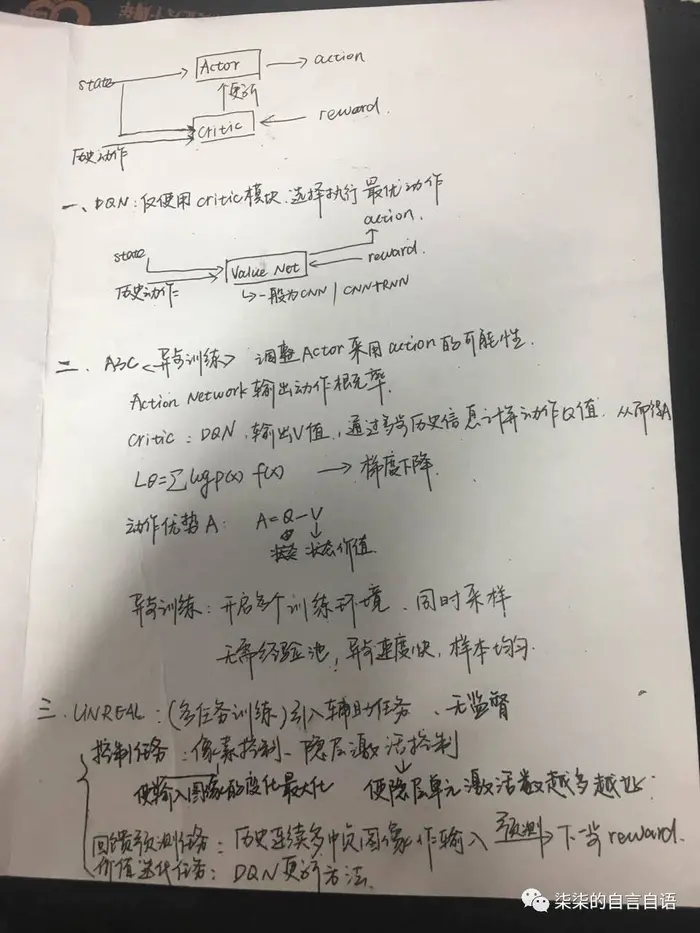 state → Actor → action
↑更新
critic ← reward
历史动作
一、DQN：仅使用critic模块、选择执行最优动作
action.
state
reward.
历史动作 Value Net
↳一般为CNN | CNN+RNN
二. A3C <异步训练> 调整Actor采用action的可能性.
Action Network 输出动作概率.
critic：DQN、输出V值，通过多步历史信息计算动作Q值. 从而得A
Lθ=∑logp(x) f(x) → 梯度下降.
动作优势A： A=Q-V
状态价值.
异步训练：开启多个训练环境、同时采样
无需经验池，异步速度快，样本均匀.
三. UNREAL：(多任务训练)引入辅助任务、无监督
控制任务：像素控制、隐层激活控制
使输入图像的变化最大化 使隐层单元激活数越多越好；
回馈预测任务：历史连续多帧图像作输入 预测→ 下一步reward.
价值迭代任务：DQN更新方法.
柒柒的自言自语